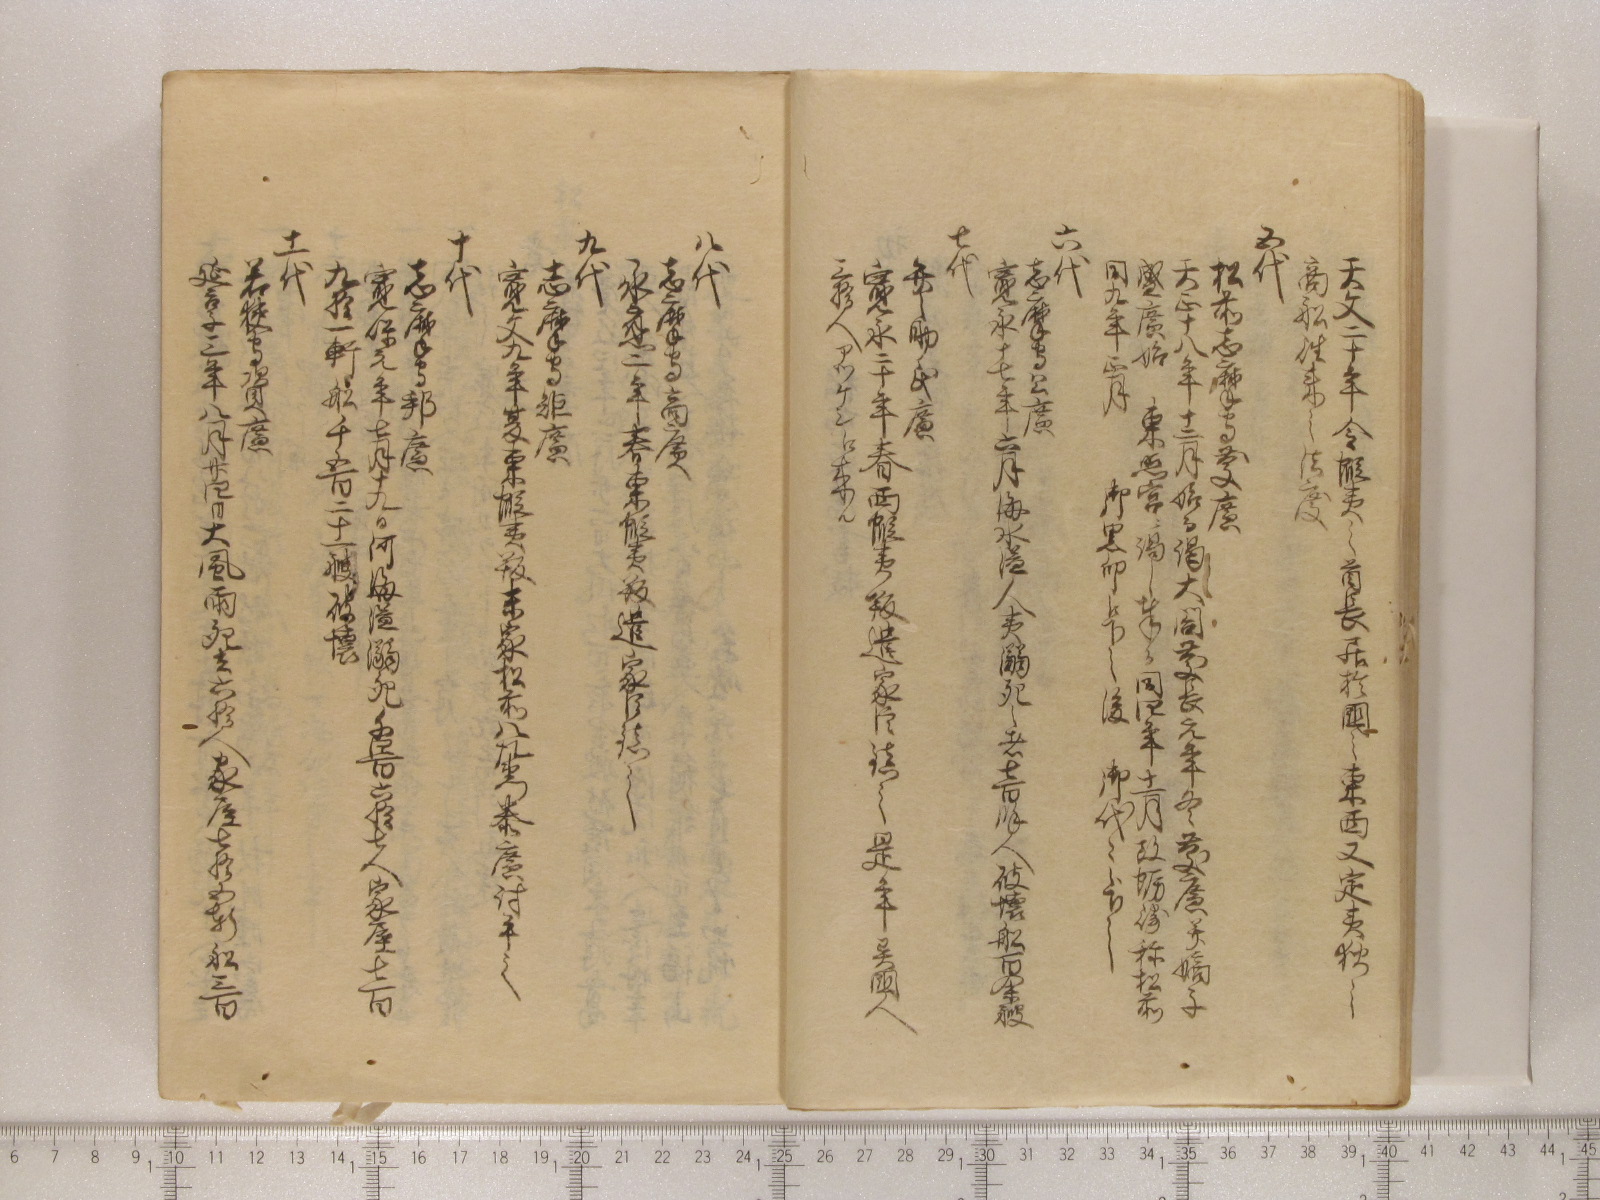 天文二十年令蝦夷之酋長居於國之東西又定夷狄之
商船往来之法度
五代
松前志摩守慶廣
天正十八年十二月始而謁大閤慶長元年冬慶廣与嫡子
盛廣始 東照宮ニ謁し奉る同四年十一月改蛎崎称松前
同九年正月 御黒印賜之後 御代々
六代
志摩守公廣
寛永十七年六月海水溢人夷溺死之者七百餘人破壊船百余艘
七代
弁之助氏廣
寛永二十年春西蝦夷叛遣家臣鎮之是年異國人
六拾人アッケシに来ル
八代
志摩守高廣
承應二年春東蝦夷叛遣家臣鎮之
九代
志摩守矩廣
寛文九年夏東蝦夷叛末家松前八左衛門泰廣討平之
十代
志摩守邦廣
寛保元年七月十九日河海溢溺死千四百六拾七人家屋七百
九拾一軒船千五百二十一艘破壊
十一代
若狭守資廣
延享三年八月廿四日大風雨死者六拾人家屋七拾四軒船三百